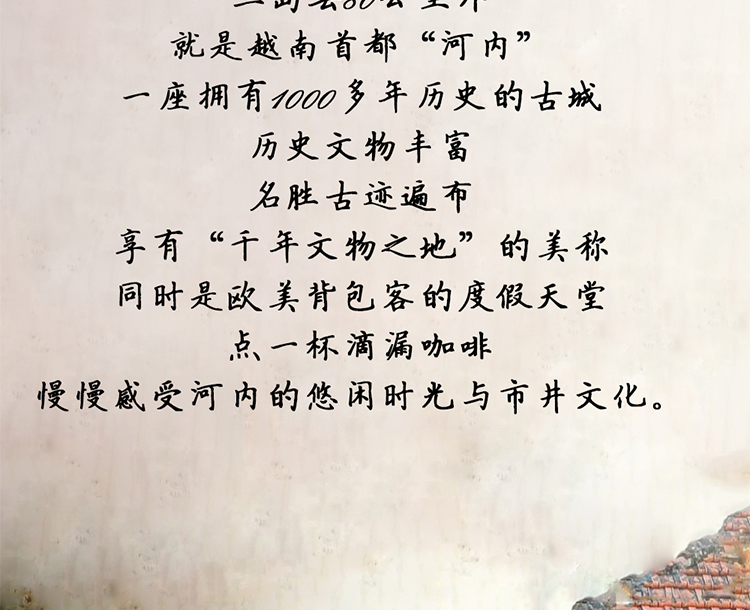 就是越南首都“河内”
一座拥有1000多年历史的古城
历史文物丰富
名胜古迹遍布
享有“千年文物之地”的美称
同时是欧美背包客的度假天堂
点一杯滴漏咖啡
慢慢感受河内的悠闲时光与市井文化。